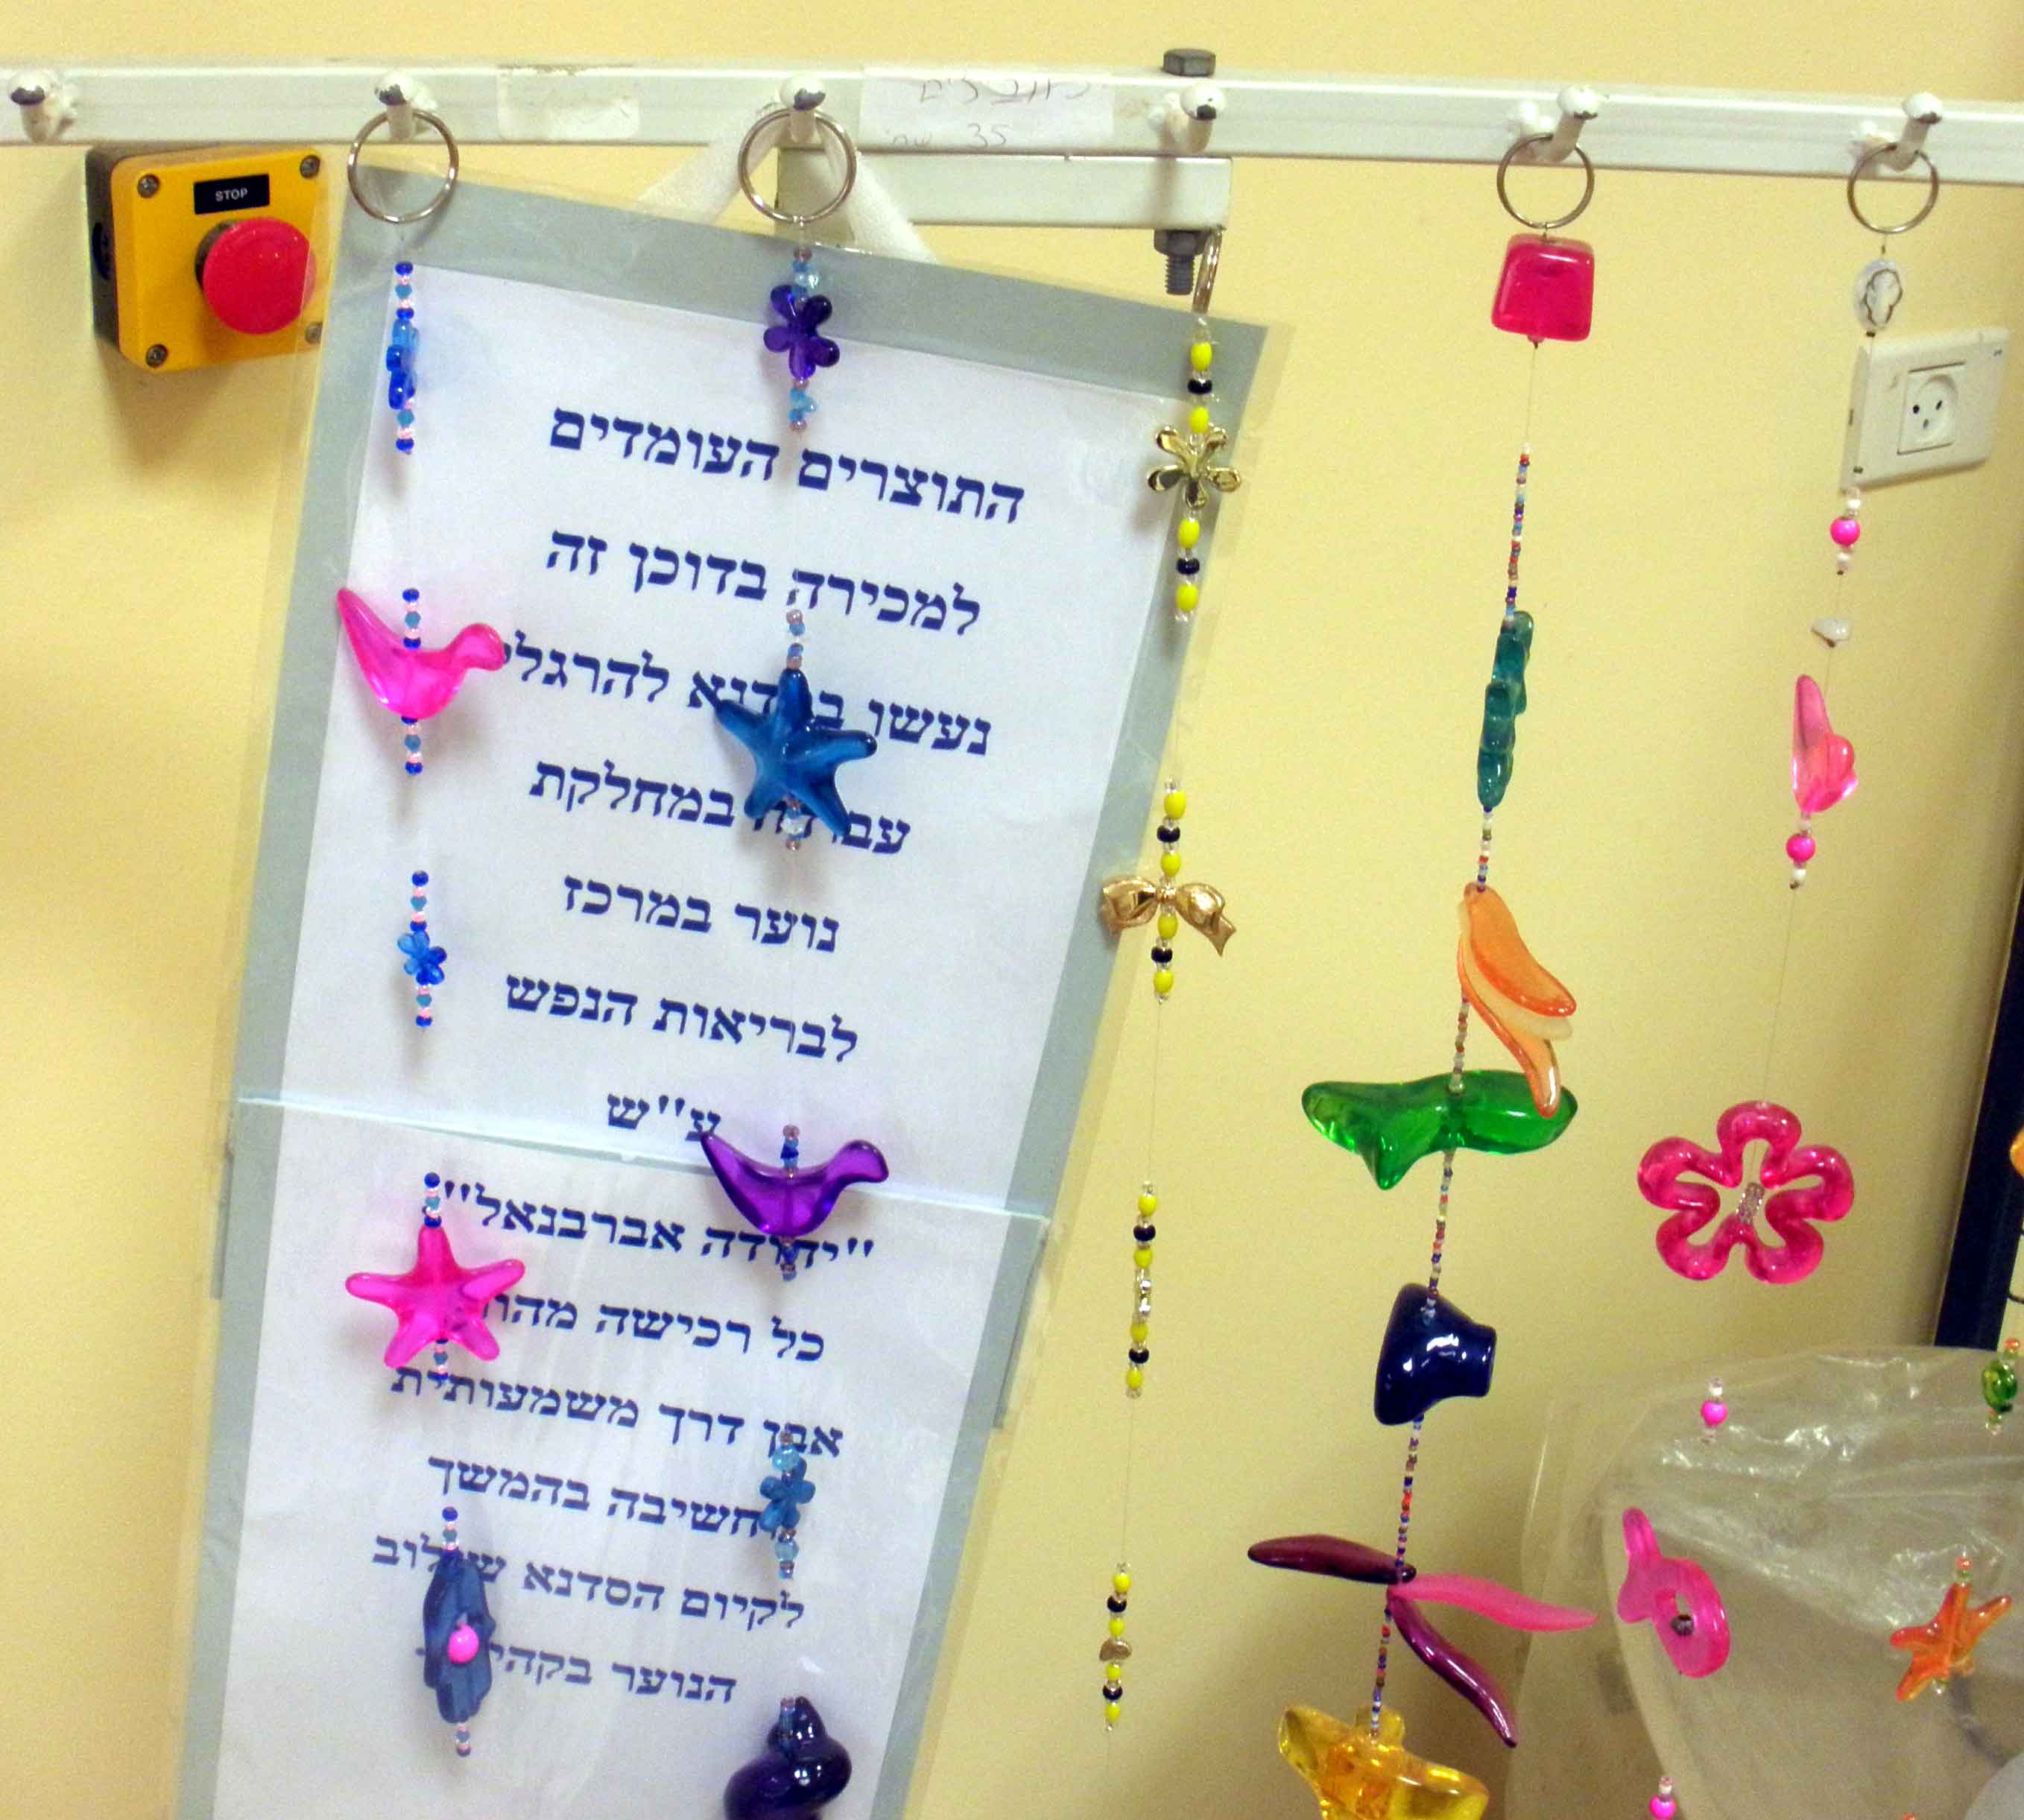 STOP
35 שח'
התוצרים העומדים
למכירה בדוכן זה
נעשו להרגלי
במחלקת
נוער במרכז
לבריאות הנפש
ע"ש
"יהודה אברבנאל"
כל רכישה
אבן דרך משמעותית
בהמשך
לקיום הסדנא
הנוער